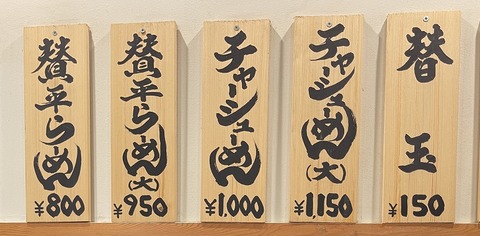 賛平らーめん
¥800
賛平らーめん(大)
¥950
チャーシューめん
¥1,000
チャーシューめん(大)
¥1,150
替玉
¥150